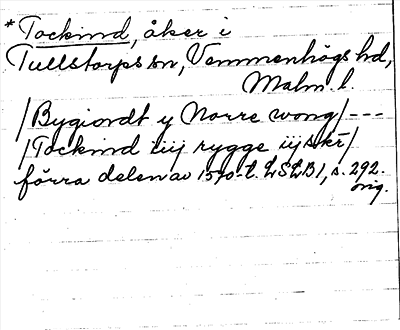 *Tockind, åker i
Tullstorps sn, Vemmenhögs hd,
Malm. l.
/Bygiordt y Norre wong/---
/Tockind iiij rygge iij skr/
förra delen av 1570-t. LSLB1, s. 292.
orig.